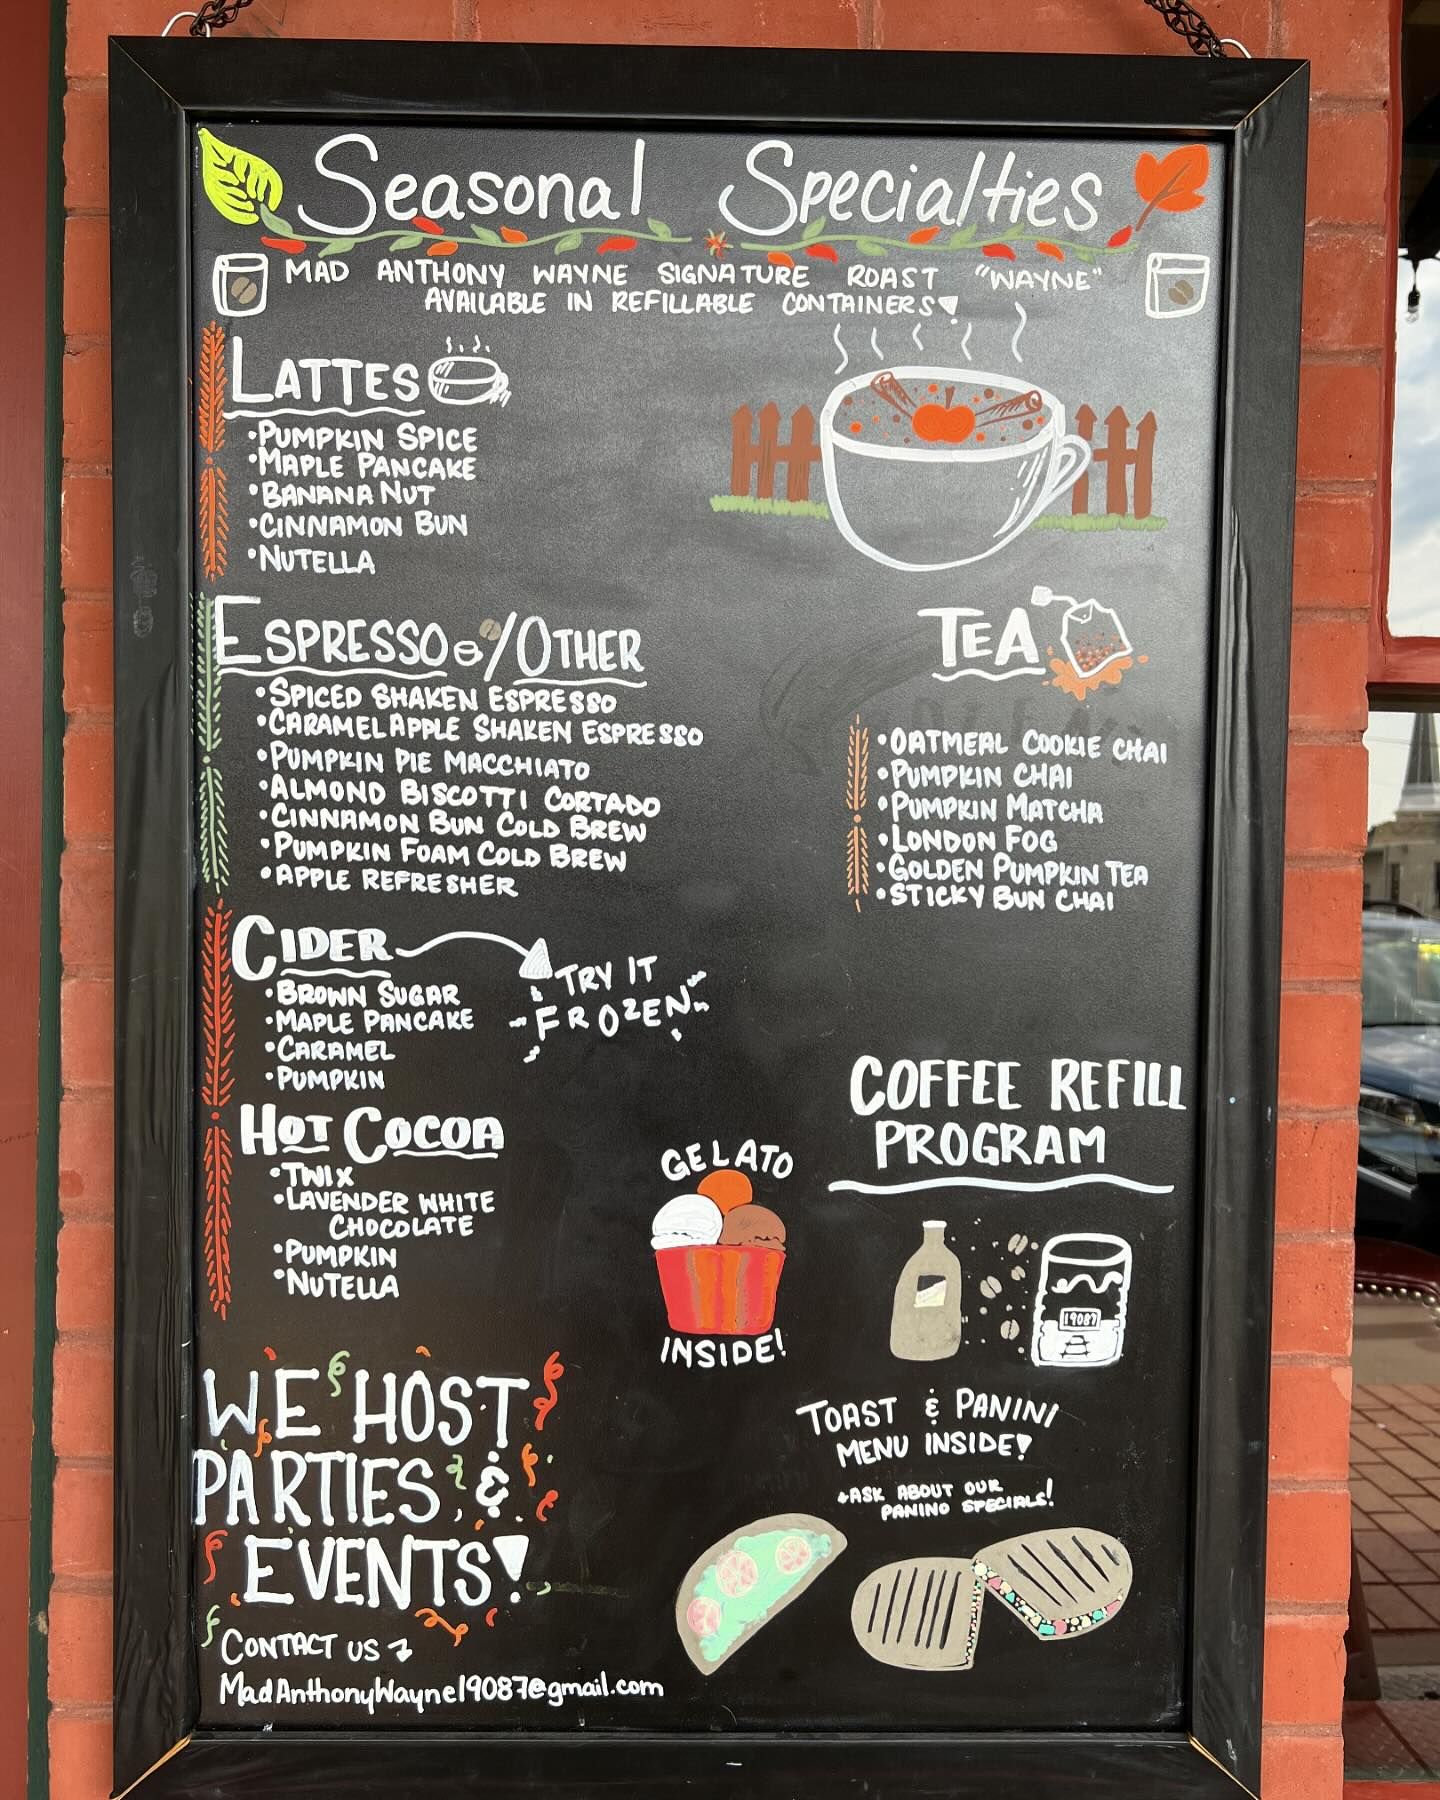 Seasonal Specialties
MAD ANTHONY WAYNE SIGNATURE ROAST "WAYNE"
AVAILABLE IN REFILLABLE CONTAINERS!
LATTES
•PUMPKIN SPICE
•MAPLE PANCAKE
•BANANA NUT
•CINNAMON BUN
•NUTELLA
ESPRESSO/OTHER
•SPICED SHAKEN ESPRESSO
•CARAMEL APPLE SHAKEN ESPRESSO
•PUMPKIN PIE MACCHIATO
•ALMOND BISCOTTI CORTADO
•CINNAMON BUN COLD BREW
•PUMPKIN FOAM COLD BREW
•APPLE REFRESHER
TEA
•OATMEAL COOKIE CHAI
•PUMPKIN CHAI
•PUMPKIN MATCHA
•LONDON FOG
•GOLDEN PUMPKIN TEA
•STICKY BUN CHAI
CIDER
TRY IT
FROZEN
•BROWN SUGAR
•MAPLE PANCAKE
•CARAMEL
•PUMPKIN
HOT COCOA
•TWIX
•LAVENDER WHITE
CHOCOLATE
•PUMPKIN
•NUTELLA
GELATO
INSIDE!
COFFEE REFILL
PROGRAM
19087
TOAST & PANINI
MENU INSIDE!
+ASK ABOUT OUR
PANINO SPECIALS!
WE HOST
PARTIES &
EVENTS!
CONTACT US
MadAnthonyWayne19087@gmail.com